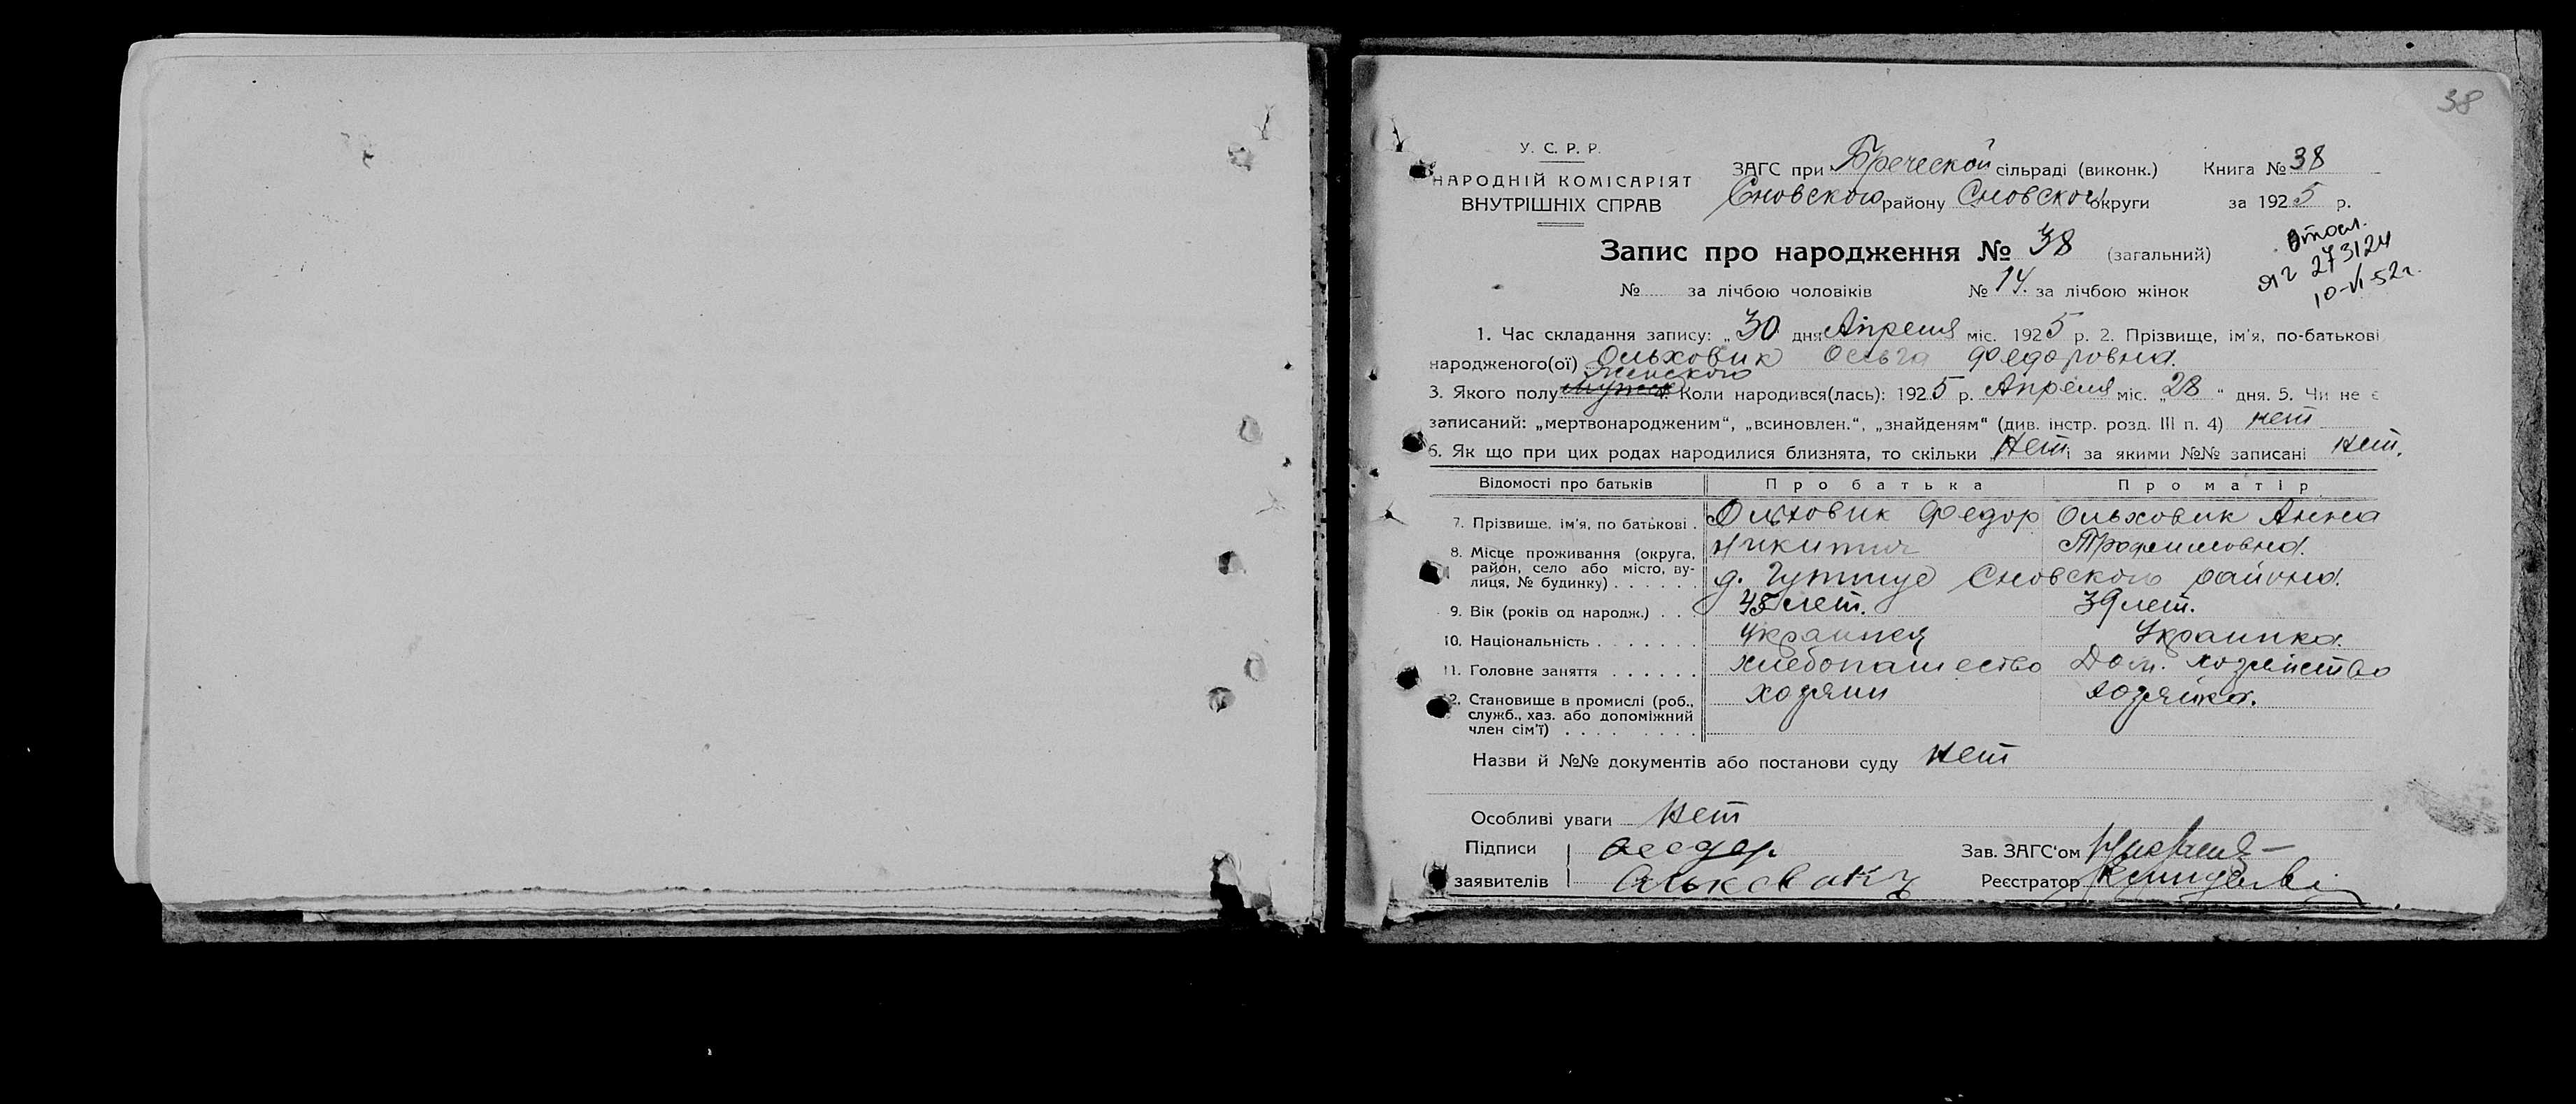 38
У. С. Р. Р.
НАРОДНІЙ КОМІСАРІЯТ
ВНУТРІШНІХ СПРАВ
ЗАГС при Бреческой сільраді (виконк.) Книга № 38
Сновского району Сновской округи за 1925 р.
Запис про народження № 38 (загальний)
№ за лічбою чоловіків № 14. за лічбою жінок
273124
10-VI-52г.
1. Час складання запису: „30 дня Апреля міс. 1925 р. 2. Прізвище, ім'я, по-батькові
народженого(ої) Ольховик Ольга Федоровна.
Женского
3. Якого полу 4. Коли народився(лась): 1925 р. Апреля міс. „28“ дня. 5. Чи не є
записаний: „мертвонародженим“, „всиновлен.“, „знайденям“ (див. інстр. розд. III п. 4) нет
6. Як що при цих родах народилися близнята, то скільки Нет і за якими №№ записані Нет.
Відомості про батьків Про батька Про матір
7. Прізвище, ім'я, по батькові . Ольховик Федор Ольховик Анна
Никитич Трофимовна.
8. Місце проживання (округа, район, село або місто, вулиця, № будинку) . . . . . . д. Сновского района.
9. Вік (років од народж.) . . . 45 лет. 39 лет.
10. Національність . . . . . . . Украинец Украинка.
11. Головне заняття . . . . . . хлебопашество Дом. хозяйство
12. Становище в промислі (роб., служб., хаз. або допоміжний член сім'ї) . . . . . . . . хозяин хозяйка.
Назви й №№ документів або постанови суду Нет
Особливі уваги Нет
Підписи Федор Зав. ЗАГС'ом
заявителів Реєстратор